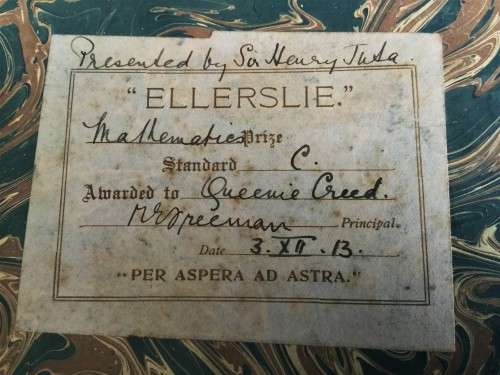 Presented by Sir Henry Juta.
"ELLERSLIE."
Mathematics Prize
Standard C.
Awarded to Queenie Creed.
Freeman Principal.
Date 3. XII. 13.
"PER ASPERA AD ASTRA."